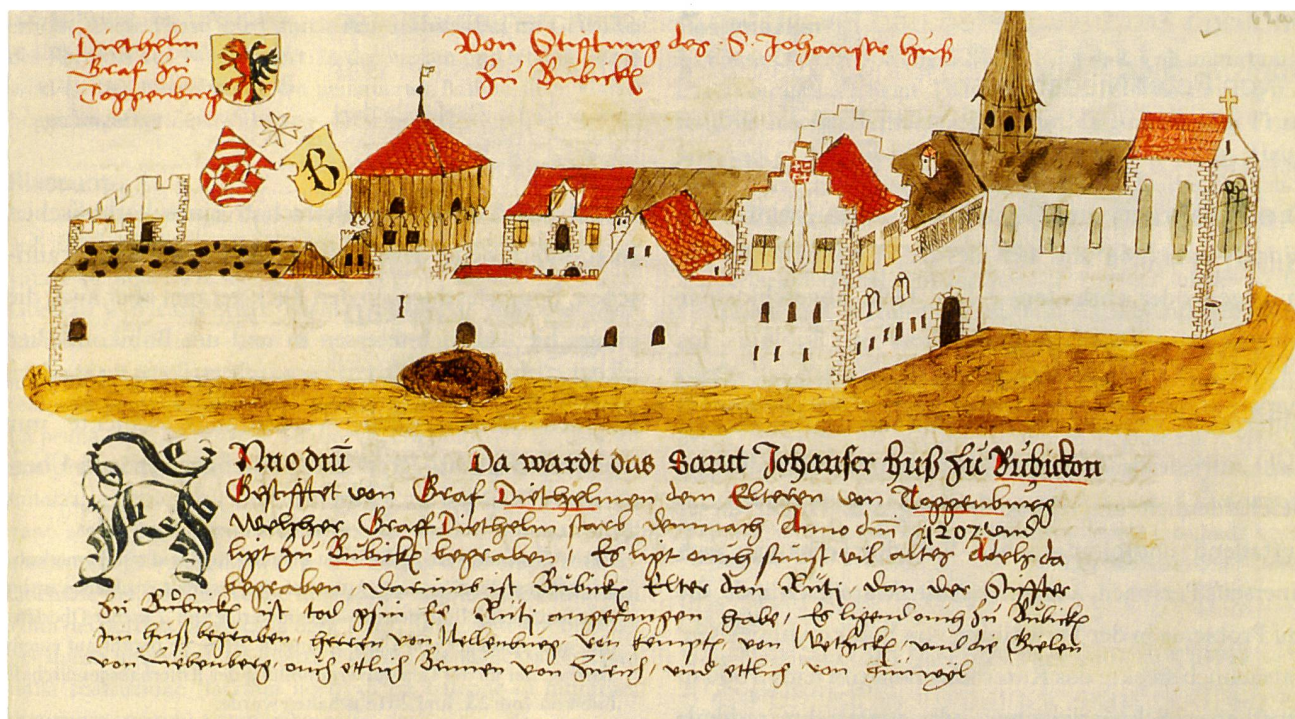 Diethelm
Graf zu
Toggenburg
Von Stifftung des S. Johanser huß
zu Bubickn
62a
B
I
Anno dm̄ Da wardt das Sanct Johanser huß zů Bůbickon
Gestifftet von Graf Diethelmen dem Elteren von Toggenburg
Welcher Graff Diethelm starb demnach Anno dm̄ 1207 und
ligt zů Bubickn begraben, Es ligt ouch sunst vil altes Adels da
begraben, darumb ist Bubickn Elter dan Rüti, dan der Stiffter
zů Bůbickn ist tod gsin Ee Rüti angefangen habe, Es ligend ouch zů Bubickn
Im huß begraben, herren von Nellenburg von kemptn, von Wetzickn, und die Gielen
von Liebenberg, ouch ettlich von Zürich, und ettlich von Hunwyl